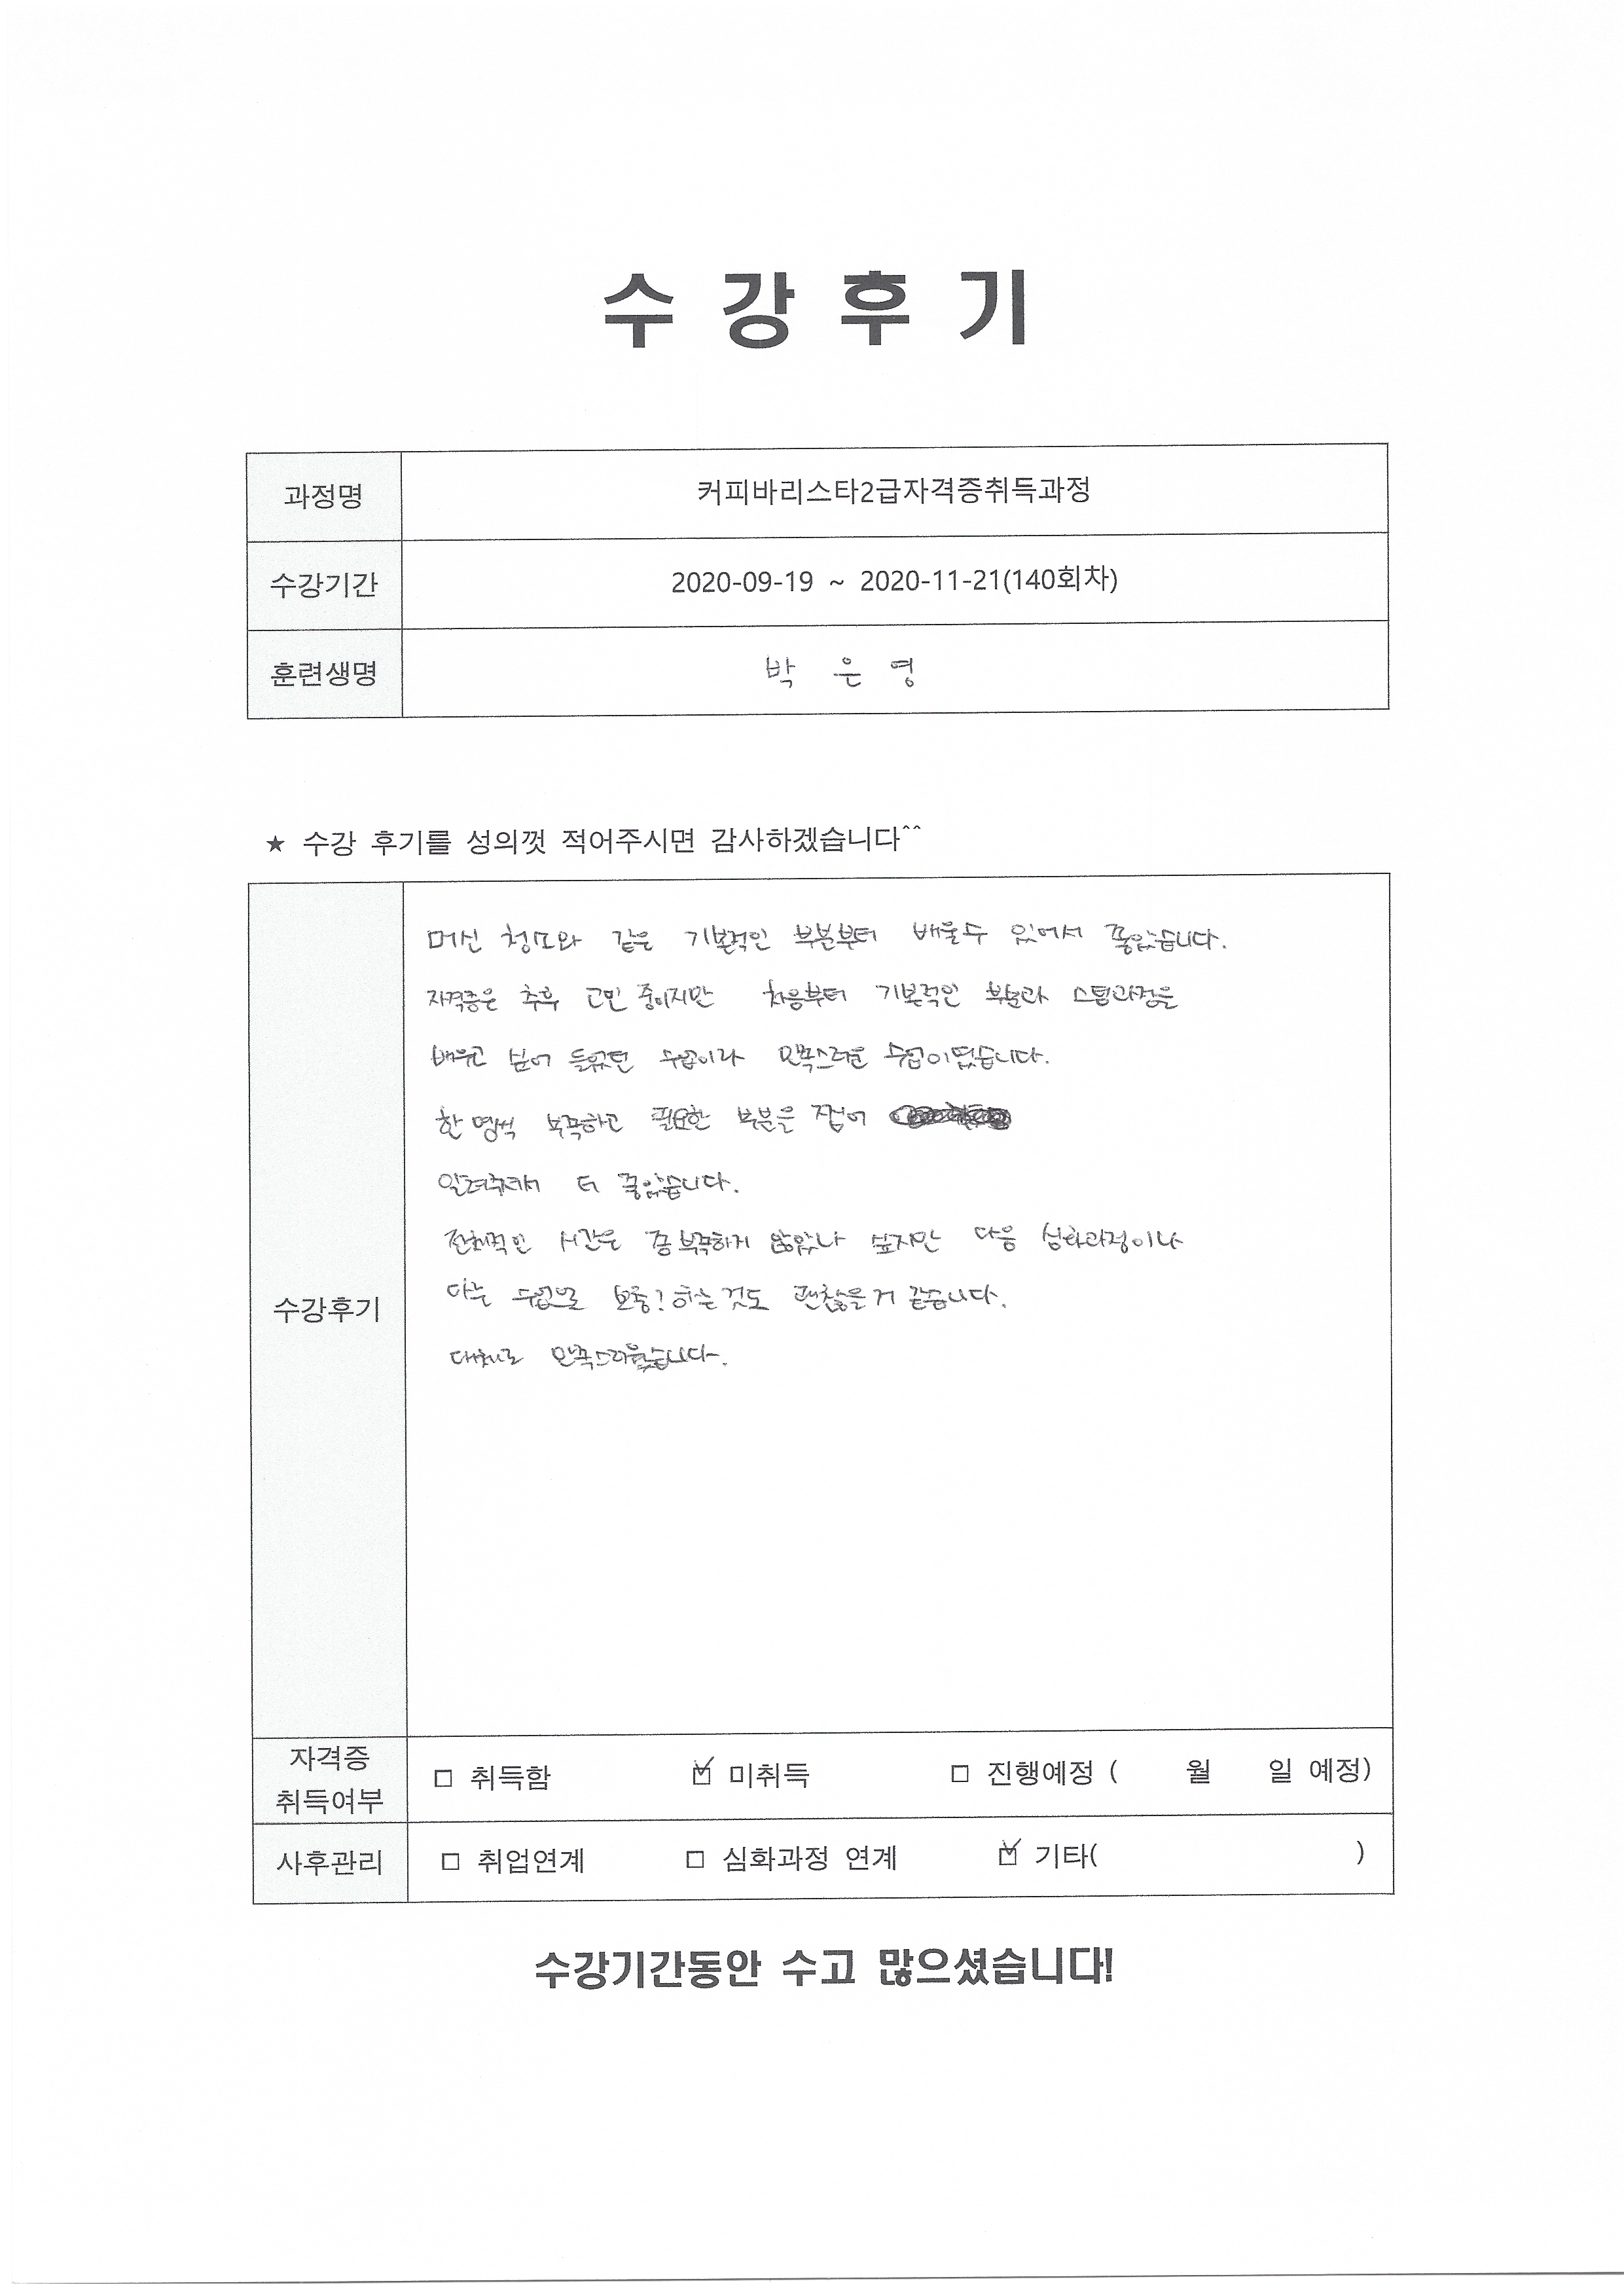 수 강 후 기
과정명 커피바리스타2급자격증취득과정
수강기간 2020-09-19 ~ 2020-11-21(140회차)
훈련생명 박 은 영
★ 수강 후기를 성의껏 적어주시면 감사하겠습니다^^
수강후기
머신 청소와 같은 기본적인 부분부터 배울수 있어서 좋았습니다.
자격증은 추후 고민 중이지만 처음부터 기본적인 부분과 스팀과정을
배우고 싶어 들었던 수업이라 만족스러운 수업이였습니다.
한 명씩 부족하고 필요한 부분을 집어
알려주셔서 더 좋았습니다.
전체적인 시간은 좀 부족하지 않았나 싶지만 다음 심화과정이나
다른 수업으로 보충? 하는것도 괜찮을거 같습니다.
대체로 만족스러웠습니다.
자격증
취득여부
□ 취득함 ☑ 미취득 □ 진행예정 ( 월 일 예정)
사후관리 □ 취업연계 □ 심화과정 연계 ☑ 기타( )
수강기간동안 수고 많으셨습니다!